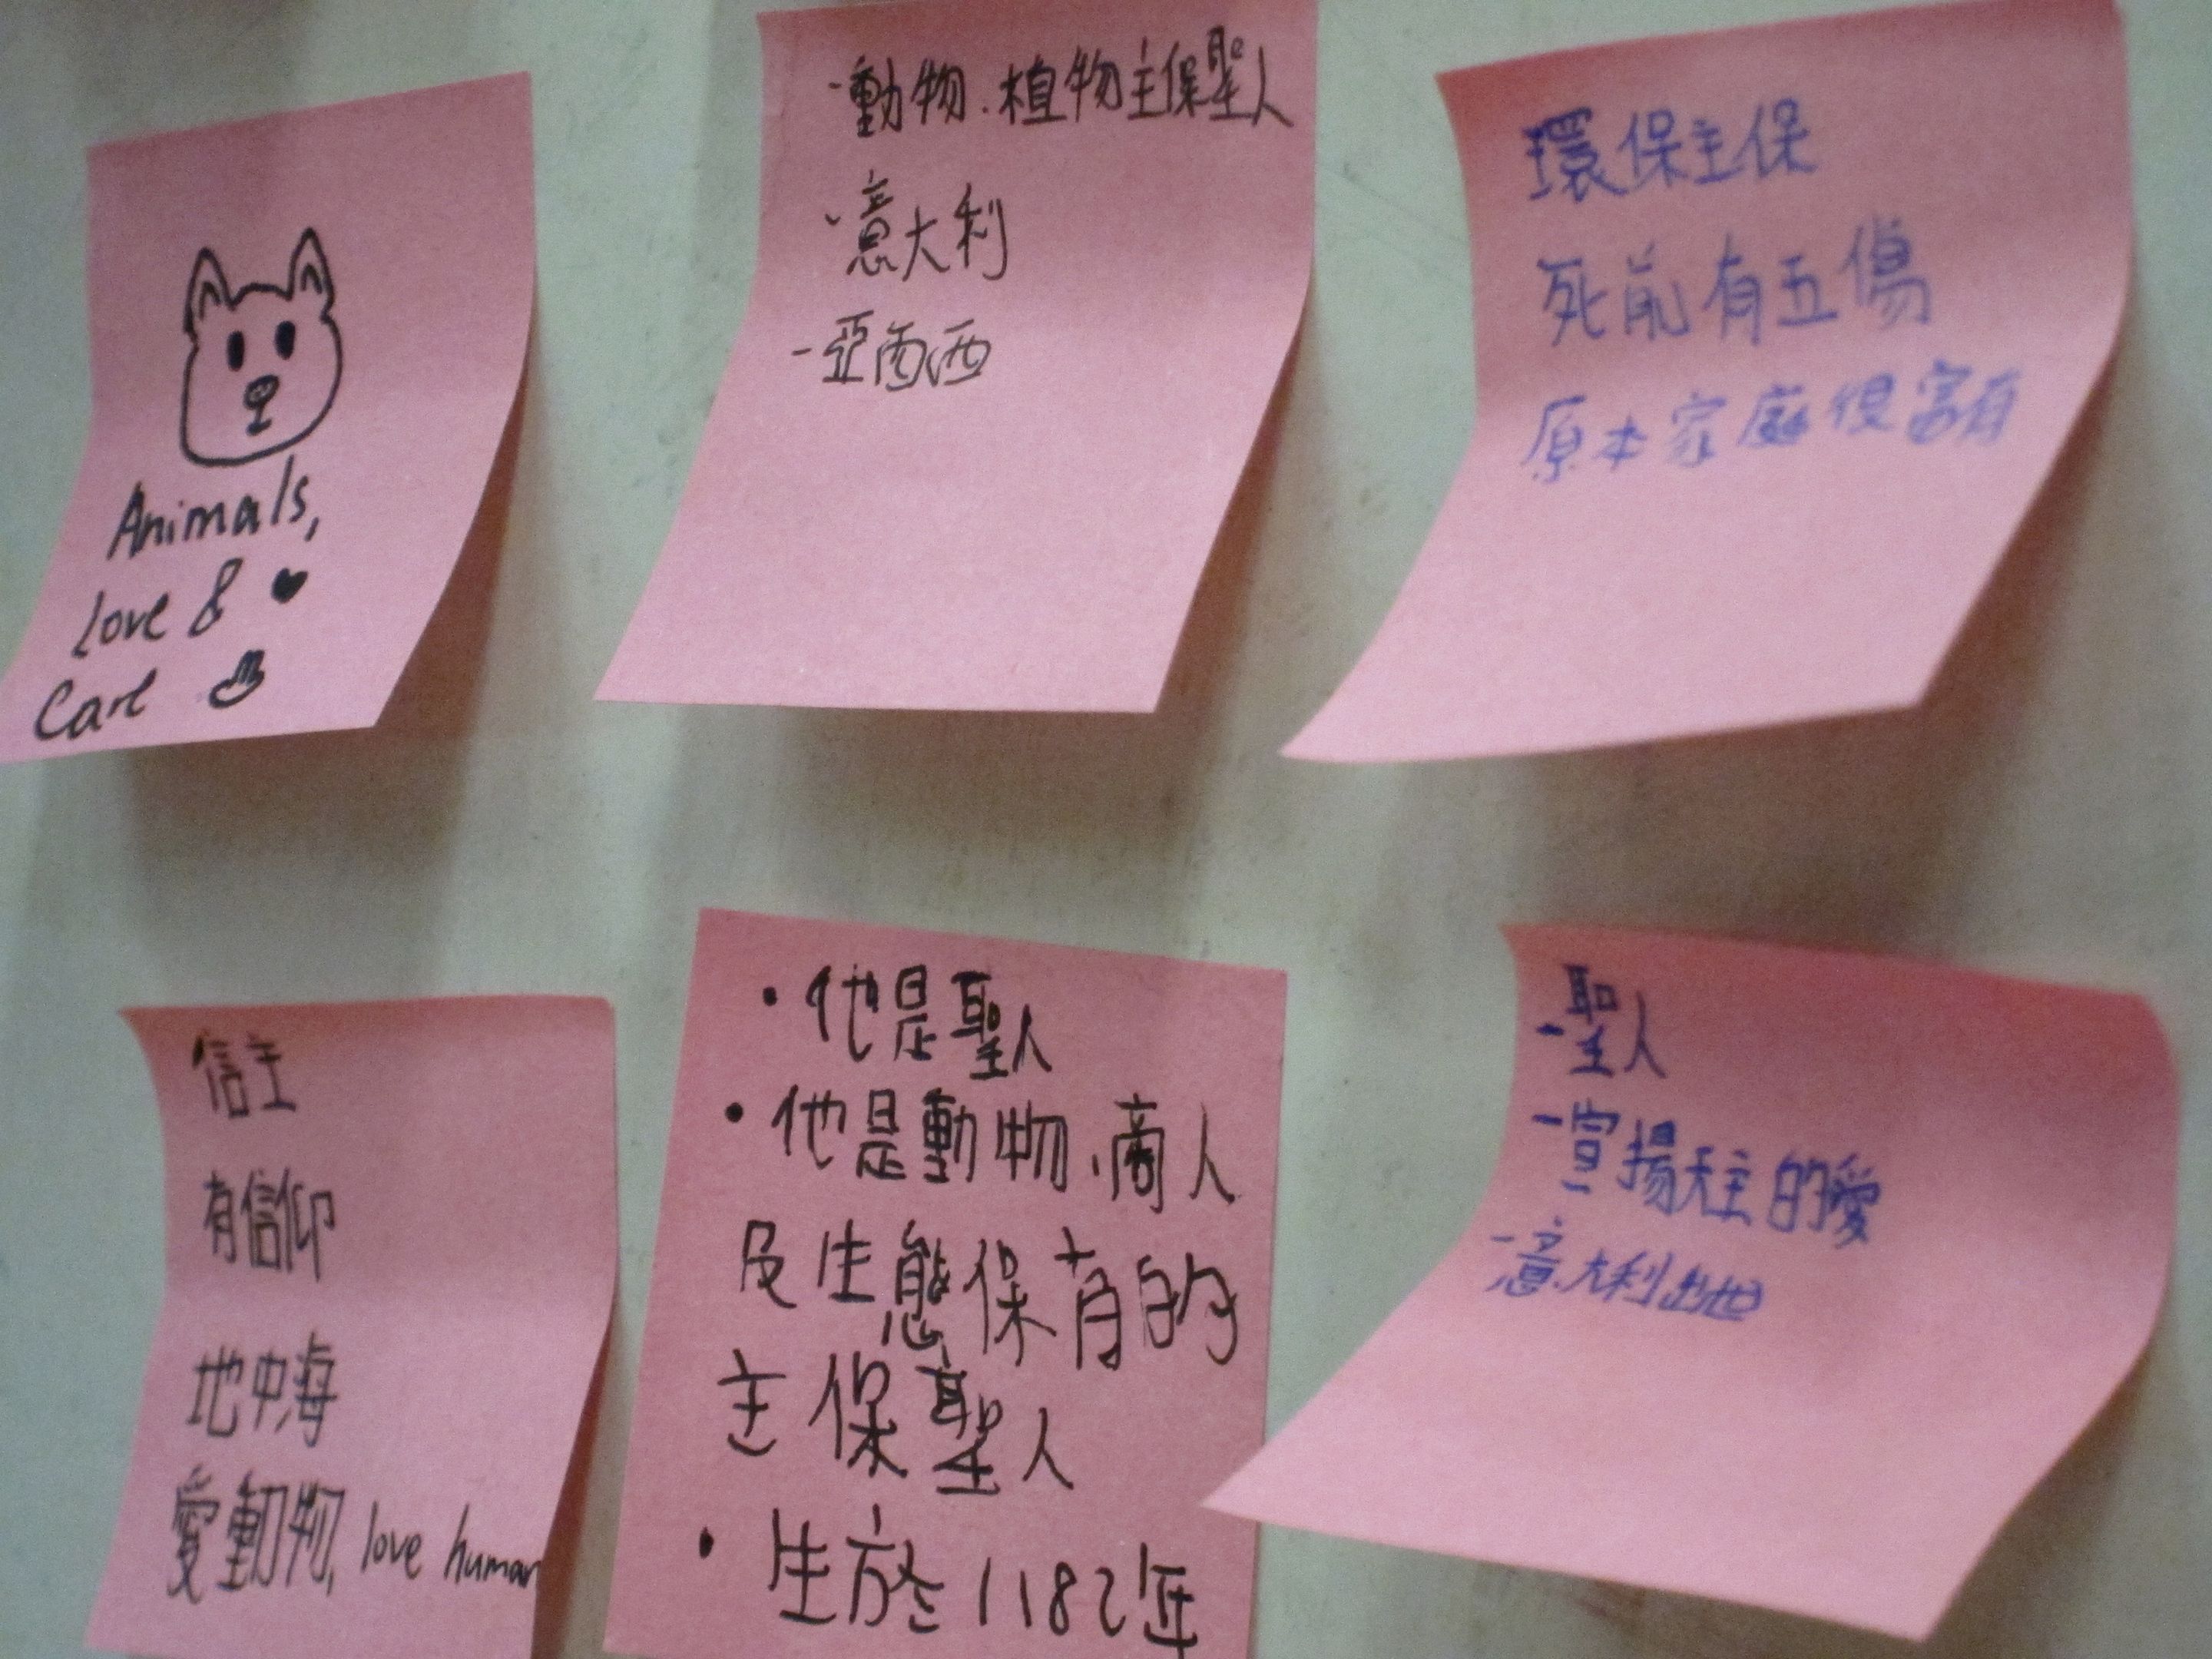 Animals,
love & ♥
Care
-動物.植物主保聖人
-意大利
-亞西西
環保主保
死前有五傷
原本家庭很富有
信主
有信仰
地中海
愛動物, love human
•他是聖人
•他是動物、商人
及生態保育的
主保聖人
•生於1182年
-聖人
-宣揚天主的愛
-意大利出世